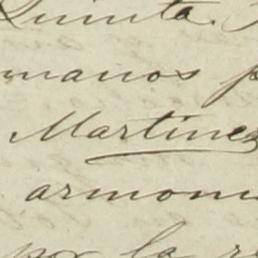 Quinta.
manos p
Martinez
armoni
por la re